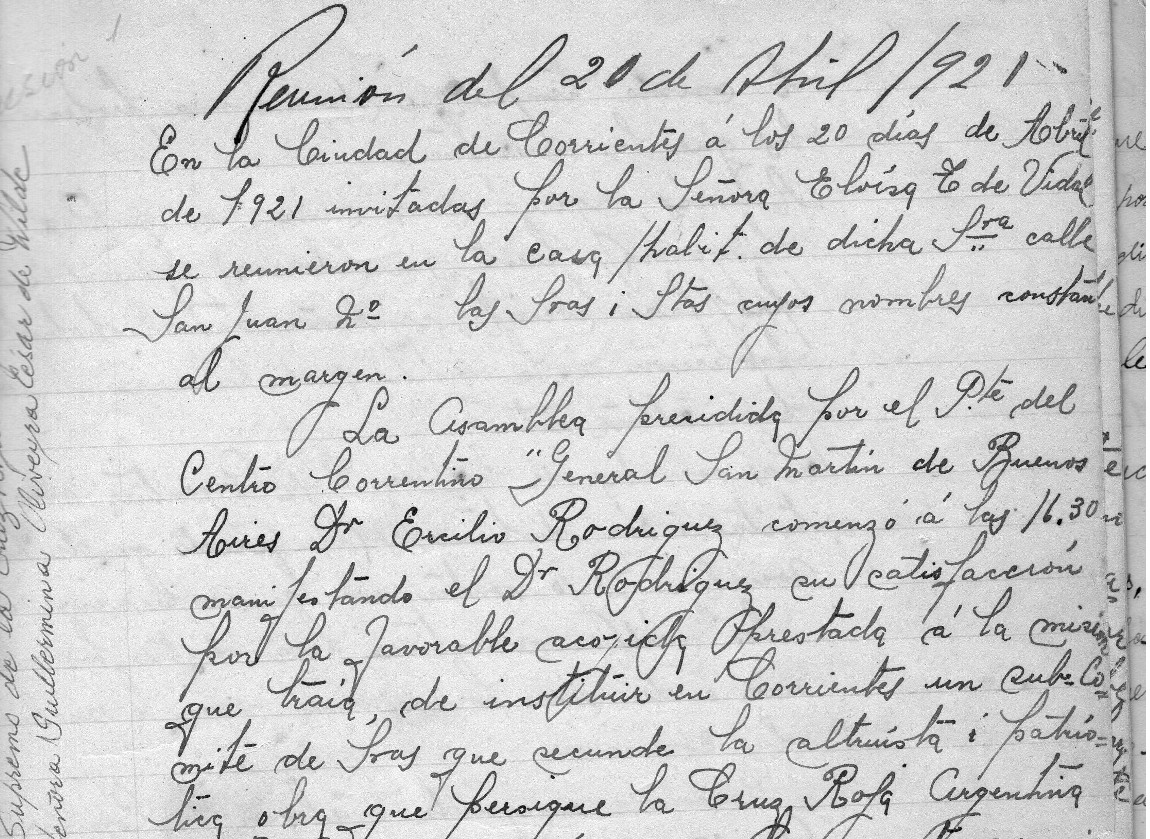 Reunión del 20 de Abril /921
En la Ciudad de Corrientes á los 20 días de Abril
de 1921 invitadas por la Señora Eloísa T de Vidal
se reunieron en la casa /habit. de dicha Sra calle
San Juan Nº las Sras i Stas cuyos nombres constan
al margen.
La Asamblea presidida por el P.te del
Centro Correntino "General San Martín de Buenos
Aires Dr Ercilio Rodriguez comenzó á las 16.30
manifestando el Dr Rodriguez su satisfacción
por la favorable acojida prestada á la misión
que traia, de instituir en Corrientes un sub-Co
mité de Sras que secunde la altruista i patrió=
tica obra que persigue la Cruz Roja Argentina
Supremo de la
Señora Guillermina Niveyra César de Wilde